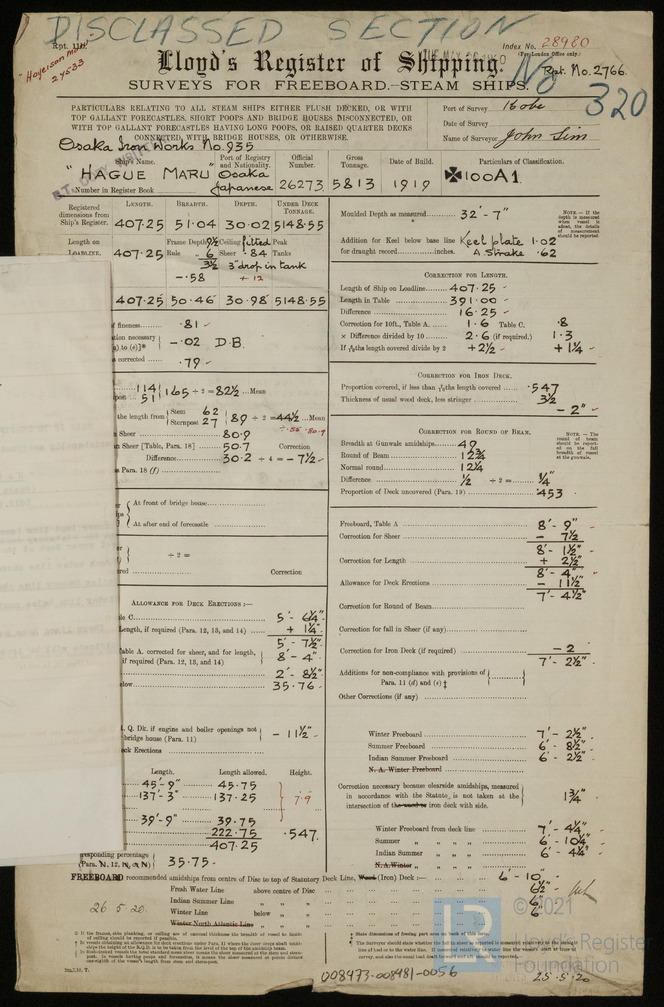 DISCLASSED SECTION
Rpt. 11B.
Index No. 28980
(For London Office only.)
"Hagerson Maru"
24533
Lloyd's Register of Shipping.
No
Rpt. No. 2766
SURVEYS FOR FREEBOARD.—STEAM SHIPS.
320
PARTICULARS RELATING TO ALL STEAM SHIPS EITHER FLUSH DECKED, OR WITH
TOP GALLANT FORECASTLES, SHORT POOPS AND BRIDGE HOUSES DISCONNECTED, OR
WITH TOP GALLANT FORECASTLES HAVING LONG POOPS, OR RAISED QUARTER DECKS
CONNECTED, WITH BRIDGE HOUSES, OR OTHERWISE.
Port of Survey Kobe
Date of Survey
Name of Surveyor John Sim
Osaka Iron Works No. 935
Ship's Name. Port of Registry and Nationality. Official Number. Gross Tonnage. Date of Build. Particulars of Classification.
"HAGUE MARU" Osaka Japanese 26273 5813 1919 ✠100A1.
Number in Register Book
Registered dimensions from Ship's Register. LENGTH. BREADTH. DEPTH. UNDER DECK TONNAGE.
407.25 51.04 30.02 5148.55
Length on LOADLINE. 407.25
Frame Depth 9½ Ceiling fitted Peak
Rule 6 Sheer .84 Tanks
3½ 3" drop in tank
-.58 + 12
407.25 50.46 30.98 5148.55
of fineness .81
.02 D.B.
corrected .79
114 165 ÷ 2 = 82½ Mean
51
the length from Stem 62
Sternpost 27 89 ÷ 2 = 44½ Mean
Sheer 80.9
Sheer [Table, Para. 18] 50.7 Correction
Difference 30.2 ÷ 4 = - 7½
Para. 18 (f)
At front of bridge house
At after end of forecastle
÷ 2 =
Correction
ALLOWANCE FOR DECK ERECTIONS :—
le C 5'- 6¼"
Length, if required (Para. 12, 13, and 14) + 1¼"
5'- 7½"
Table A. corrected for sheer, and for length, if required (Para. 12, 13, and 14) 8'- 4"
2'- 8½"
below 35.76
. Q. Dk. if engine and boiler openings not
bridge house (Para. 11) - 11½"
Deck Erections
Length. Length allowed. Height.
45'-9" 45.75
137'-3" 137.25 7.9
39'-9" 39.75
222.75 .547
407.25
Corresponding percentage
(Para. 35.75
Moulded Depth as measured 32'- 7"
NOTE.—If the depth is measured when vessel is afloat, the details of measurement should be reported.
Addition for Keel below base line Keel plate 1.02
for draught record inches. A Strake .62
CORRECTION FOR LENGTH.
Length of Ship on Loadline 407.25
Length in Table 391.00
Difference 16.25
Correction for 10ft., Table A. 1.6 Table C. .8
× Difference divided by 10 2.6 (if required.) 1.3
If ⁶⁄₁₀ths length covered divide by 2 +2½ +1¼
CORRECTION FOR IRON DECK.
Proportion covered, if less than ⁷⁄₁₀ths length covered .547
Thickness of usual wood deck, less stringer 3½
- 2"
CORRECTION FOR ROUND OF BEAM.
Breadth at Gunwale amidships 49
Round of Beam 12¾
Normal round 12¼
Difference ½ ÷ 2 = ¼"
Proportion of Deck uncovered (Para. 19) .453
NOTE.—The round of beam should be reported on the full breadth of vessel at the gunwale.
Freeboard, Table A 8'- 9"
Correction for Sheer - 7½
8'- 1½"
Correction for Length + 2½"
8'- 4"
Allowance for Deck Erections - 11½"
7'- 4½"
Correction for Round of Beam
Correction for fall in Sheer (if any)
Correction for Iron Deck (if required) - 2
7'- 2½"
Additions for non-compliance with provisions of Para. 11 (d) and (e) ‡
Other Corrections (if any)
Winter Freeboard 7'- 2½"
Summer Freeboard 6'- 8½"
Indian Summer Freeboard 6'- 2½"
N. A. Winter Freeboard
Correction necessary because clearside amidships, measured
in accordance with the Statute, is not taken at the
intersection of the iron deck with side. 1¾"
Winter Freeboard from deck line 7'- 4¼"
Summer " " " " 6'- 10¼"
Indian Summer " " " 6'- 4¼"
N.A. Winter " " " "
FREEBOARD recommended amidships from centre of Disc to top of Statutory Deck Line, Wood (Iron) Deck :— 6'- 10
Fresh Water Line above centre of Disc 6½"
Indian Summer Line " " 6"
Winter Line below " 6"
Winter North Atlantic Line " "
26.5.20
© 2021
LR
Lloyd's Register
Foundation
008473-008481-0056
25.5.20